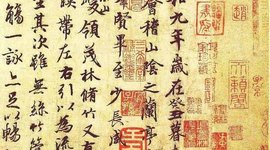 和九年歲在癸丑暮
會稽山陰之蘭亭
賢畢至少長咸
峻領茂林脩竹又有
暎帶左右引以為流
坐其次雖無絲竹
觴一詠亦足以暢